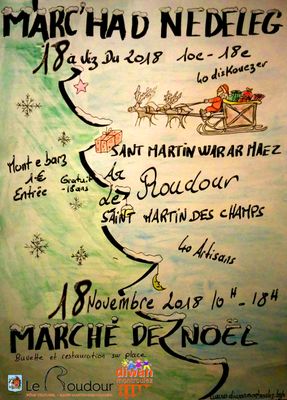 MARC'HAD NEDELEG
18 a viz Du 2018 10e - 18e
40 diskouezer
SANT MARTIN WAR AR MAEZ
Mont e barz
1€
Entrée
Gratuit
-18 ans
Ar
Le Roudour
SAINT MARTIN DES CHAMPS
40 Artisans
18 Novembre 2018 10H - 18H
MARCHÉ DE NOËL
Buvette et restauration sur place
Le Roudour
diwan
montroulez